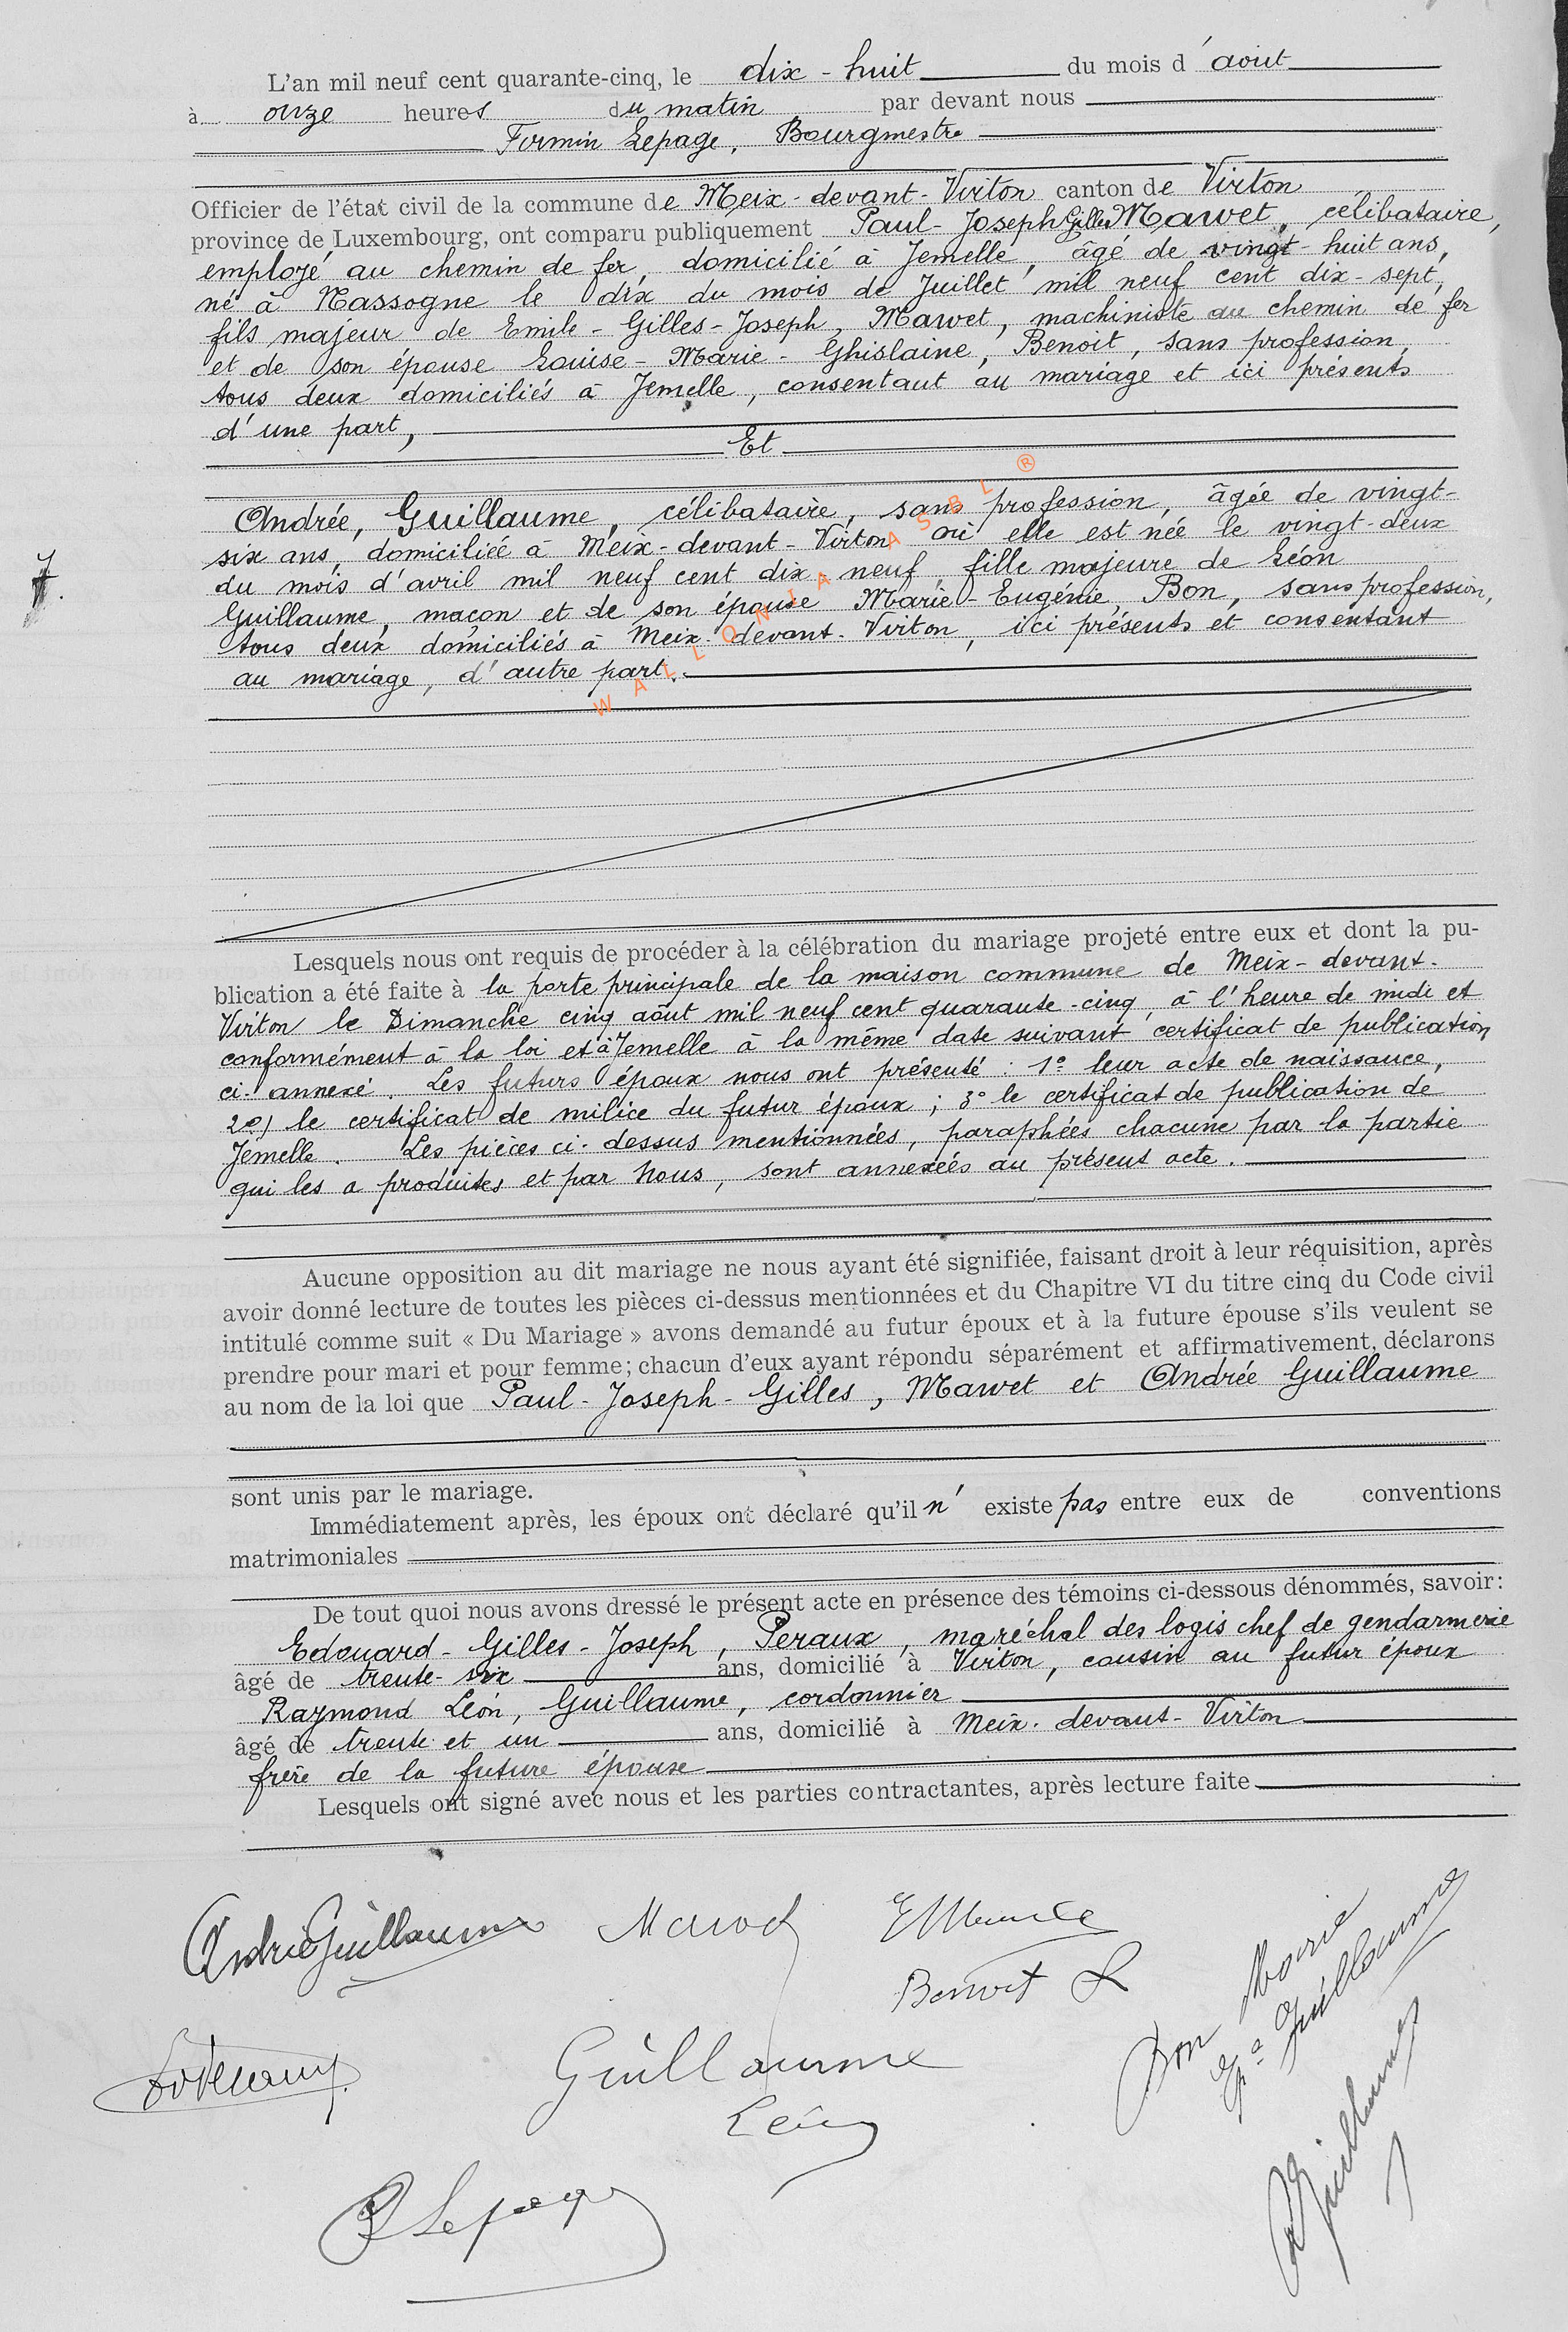 L'an mil neuf cent quarante-cinq, le dix-huit du mois d'aout
à onze heures du matin par devant nous
Firmin Lepage, Bourgmestre
Officier de l'état civil de la commune de Meix-devant-Virton canton de Virton
province de Luxembourg, ont comparu publiquement Paul-Joseph Gilles Mawet, célibataire,
employé au chemin de fer, domicilié à Jemelle, âgé de vingt-huit ans,
né à Nassogne le dix du mois de Juillet mil neuf cent dix-sept,
fils majeur de Emile-Gilles-Joseph, Mawet, machiniste au chemin de fer
et de son épouse Louise-Marie-Ghislaine, Benoit, sans profession,
tous deux domiciliés à Jemelle, consentant au mariage et ici présents
d'une part,
Et
Andrée, Guillaume, célibataire, sans profession, âgée de vingt-
six ans, domiciliée à Meix-devant-Virton où elle est née le vingt-deux
du mois d'avril mil neuf cent dix neuf, fille majeure de Léon
7.
Guillaume, maçon et de son épouse Marie-Eugénie, Bon, sans profession,
tous deux domiciliés à Meix-devant-Virton, ici présents et consentant
au mariage, d'autre part.
WALLONIA ASBL ®
Lesquels nous ont requis de procéder à la célébration du mariage projeté entre eux et dont la pu-
blication a été faite à la porte principale de la maison commune de Meix-devant-
Virton le Dimanche cinq août mil neuf cent quarante-cinq, à l'heure de midi et
conformément à la loi et à Jemelle à la même date suivant certificat de publication
ci-annexé. Les futurs époux nous ont présenté : 1° leur acte de naissance,
2°) le certificat de milice du futur époux ; 3° le certificat de publication de
Jemelle. Les pièces ci-dessus mentionnées, paraphées chacune par la partie
qui les a produites et par Nous, sont annexées au présent acte.
Aucune opposition au dit mariage ne nous ayant été signifiée, faisant droit à leur réquisition, après
avoir donné lecture de toutes les pièces ci-dessus mentionnées et du Chapitre VI du titre cinq du Code civil
intitulé comme suit « Du Mariage » avons demandé au futur époux et à la future épouse s'ils veulent se
prendre pour mari et pour femme; chacun d'eux ayant répondu séparément et affirmativement, déclarons
au nom de la loi que Paul-Joseph-Gilles, Mawet et Andrée Guillaume
sont unis par le mariage.
Immédiatement après, les époux ont déclaré qu'il n'existe pas entre eux de conventions
matrimoniales
De tout quoi nous avons dressé le présent acte en présence des témoins ci-dessous dénommés, savoir:
Edouard-Gilles-Joseph, Peraux, maréchal des logis chef de gendarmerie
âgé de trente-six ans, domicilié à Virton, cousin au futur époux
Raymond Léon, Guillaume, cordonnier
âgé de trente et un ans, domicilié à Meix-devant-Virton
frère de la future épouse
Lesquels ont signé avec nous et les parties contractantes, après lecture faite
Andrée Guillaume Mawet
Benoit L
Bon Marie
Ep. Guillaume
Guillaume
Léon
R Guillaume
F Lepage